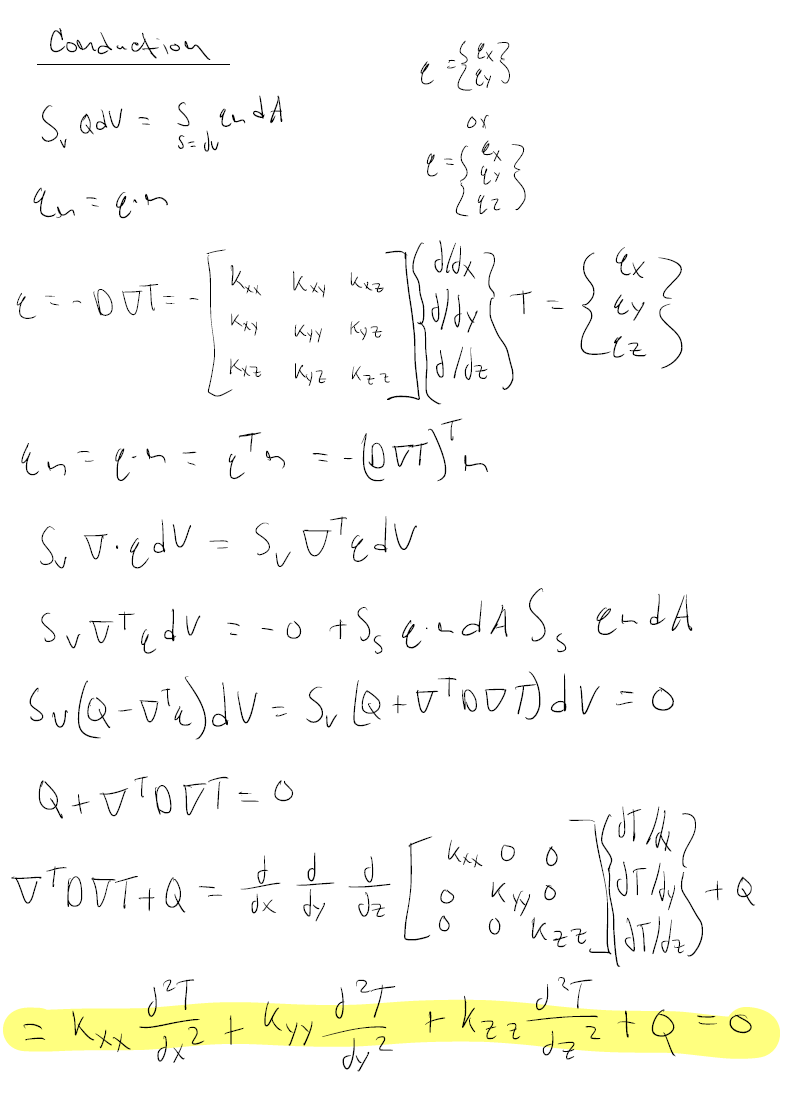 Conduction
q = {qx qy}
or
q = {qx qy qz}
S_v QdV = S_{s=dv} qn dA
qn = q·n
q = -D∇T = -[Kxx Kxy Kxz
Kxy Kyy Kyz
Kxz Kyz Kzz] {d/dx d/dy d/dz} T = {qx qy qz}
qn = q·n = q^T n = -(D∇T)^T n
S_v ∇·q dV = S_v ∇^T q dV
S_v ∇^T q dV = -0 + S_s q·n dA S_s qn dA
S_v (Q - ∇^T q) dV = S_v (Q + ∇^T D∇T) dV = 0
Q + ∇^T D∇T = 0
∇^T D∇T + Q = d/dx d/dy d/dz [Kxx 0 0
0 Kyy 0
0 0 Kzz] {dT/dx dT/dy dT/dz} + Q
= Kxx d²T/dx² + Kyy d²T/dy² + Kzz d²T/dz² + Q = 0